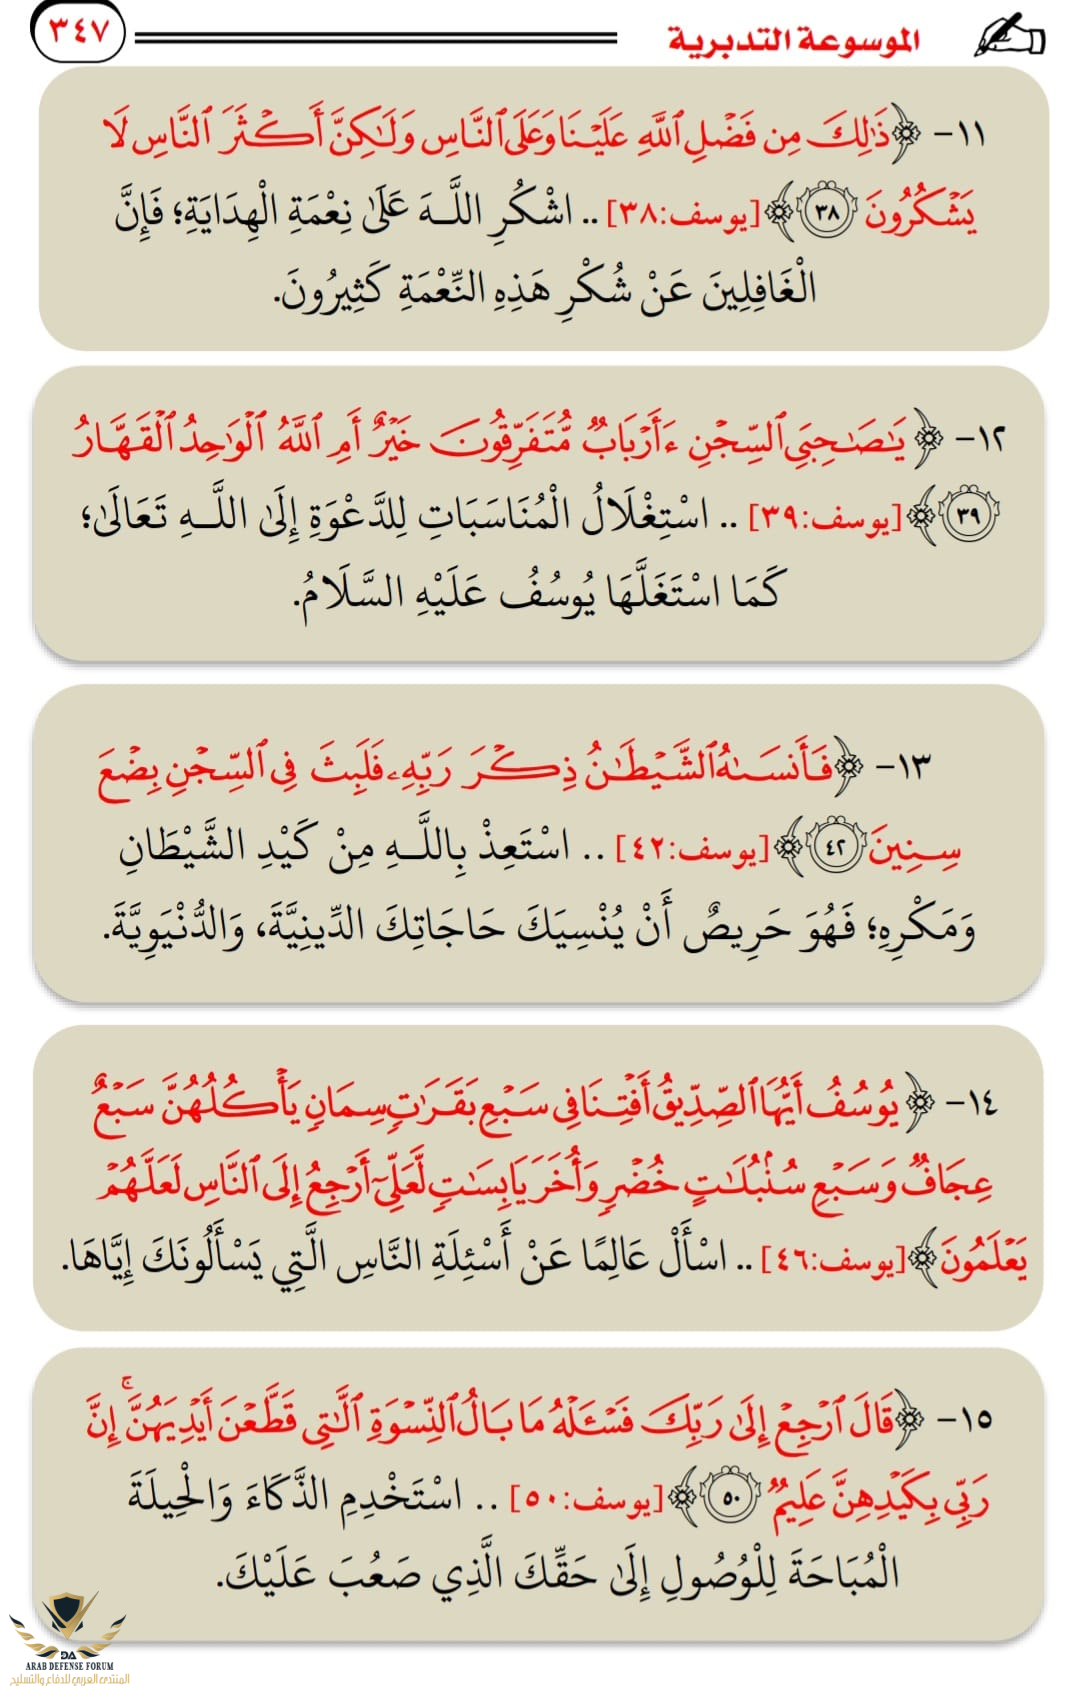 الموسوعة التدبرية
٣٤٧
١١- ﴿ذَٰلِكَ مِن فَضۡلِ ٱللَّهِ عَلَيۡنَا وَعَلَى ٱلنَّاسِ وَلَٰكِنَّ أَكۡثَرَ ٱلنَّاسِ لَا
يَشۡكُرُونَ ٣٨﴾ [يوسف:٣٨] .. اشْكُرِ اللَّهَ عَلَىٰ نِعْمَةِ الْهِدَايَةِ؛ فَإِنَّ
الْغَافِلِينَ عَنْ شُكْرِ هَذِهِ النِّعْمَةِ كَثِيرُونَ.
١٢- ﴿يَٰصَٰحِبَيِ ٱلسِّجۡنِ ءَأَرۡبَابٞ مُّتَفَرِّقُونَ خَيۡرٌ أَمِ ٱللَّهُ ٱلۡوَٰحِدُ ٱلۡقَهَّارُ
٣٩﴾ [يوسف:٣٩] .. اسْتِغْلَالُ الْمُنَاسَبَاتِ لِلدَّعْوَةِ إِلَىٰ اللَّهِ تَعَالَىٰ؛
كَمَا اسْتَغَلَّهَا يُوسُفُ عَلَيْهِ السَّلَامُ.
١٣- ﴿فَأَنسَىٰهُ ٱلشَّيۡطَٰنُ ذِكۡرَ رَبِّهِۦ فَلَبِثَ فِي ٱلسِّجۡنِ بِضۡعَ
سِنِينَ ٤٢﴾ [يوسف:٤٢] .. اسْتَعِذْ بِاللَّهِ مِنْ كَيْدِ الشَّيْطَانِ
وَمَكْرِهِ؛ فَهُوَ حَرِيصٌ أَنْ يُنْسِيَكَ حَاجَاتِكَ الدِّينِيَّةَ، وَالدُّنْيَوِيَّةَ.
١٤- ﴿يُوسُفُ أَيُّهَا ٱلصِّدِّيقُ أَفۡتِنَا فِي سَبۡعِ بَقَرَٰتٖ سِمَانٖ يَأۡكُلُهُنَّ سَبۡعٌ
عِجَافٞ وَسَبۡعِ سُنۢبُلَٰتٍ خُضۡرٖ وَأُخَرَ يَابِسَٰتٖ لَّعَلِّيٓ أَرۡجِعُ إِلَى ٱلنَّاسِ لَعَلَّهُمۡ
يَعۡلَمُونَ﴾ [يوسف:٤٦] .. اسْأَلْ عَالِمًا عَنْ أَسْئِلَةِ النَّاسِ الَّتِي يَسْأَلُونَكَ إِيَّاهَا.
١٥- ﴿قَالَ ٱرۡجِعۡ إِلَىٰ رَبِّكَ فَسۡـَٔلۡهُ مَا بَالُ ٱلنِّسۡوَةِ ٱلَّٰتِي قَطَّعۡنَ أَيۡدِيَهُنَّۚ إِنَّ
رَبِّي بِكَيۡدِهِنَّ عَلِيمٞ ٥٠﴾ [يوسف:٥٠] .. اسْتَخْدِمِ الذَّكَاءَ وَالْحِيلَةَ
الْمُبَاحَةَ لِلْوُصُولِ إِلَىٰ حَقِّكَ الَّذِي صَعُبَ عَلَيْكَ.
DA
ARAB DEFENSE FORUM
المنتدى العربي للدفاع والتسليح